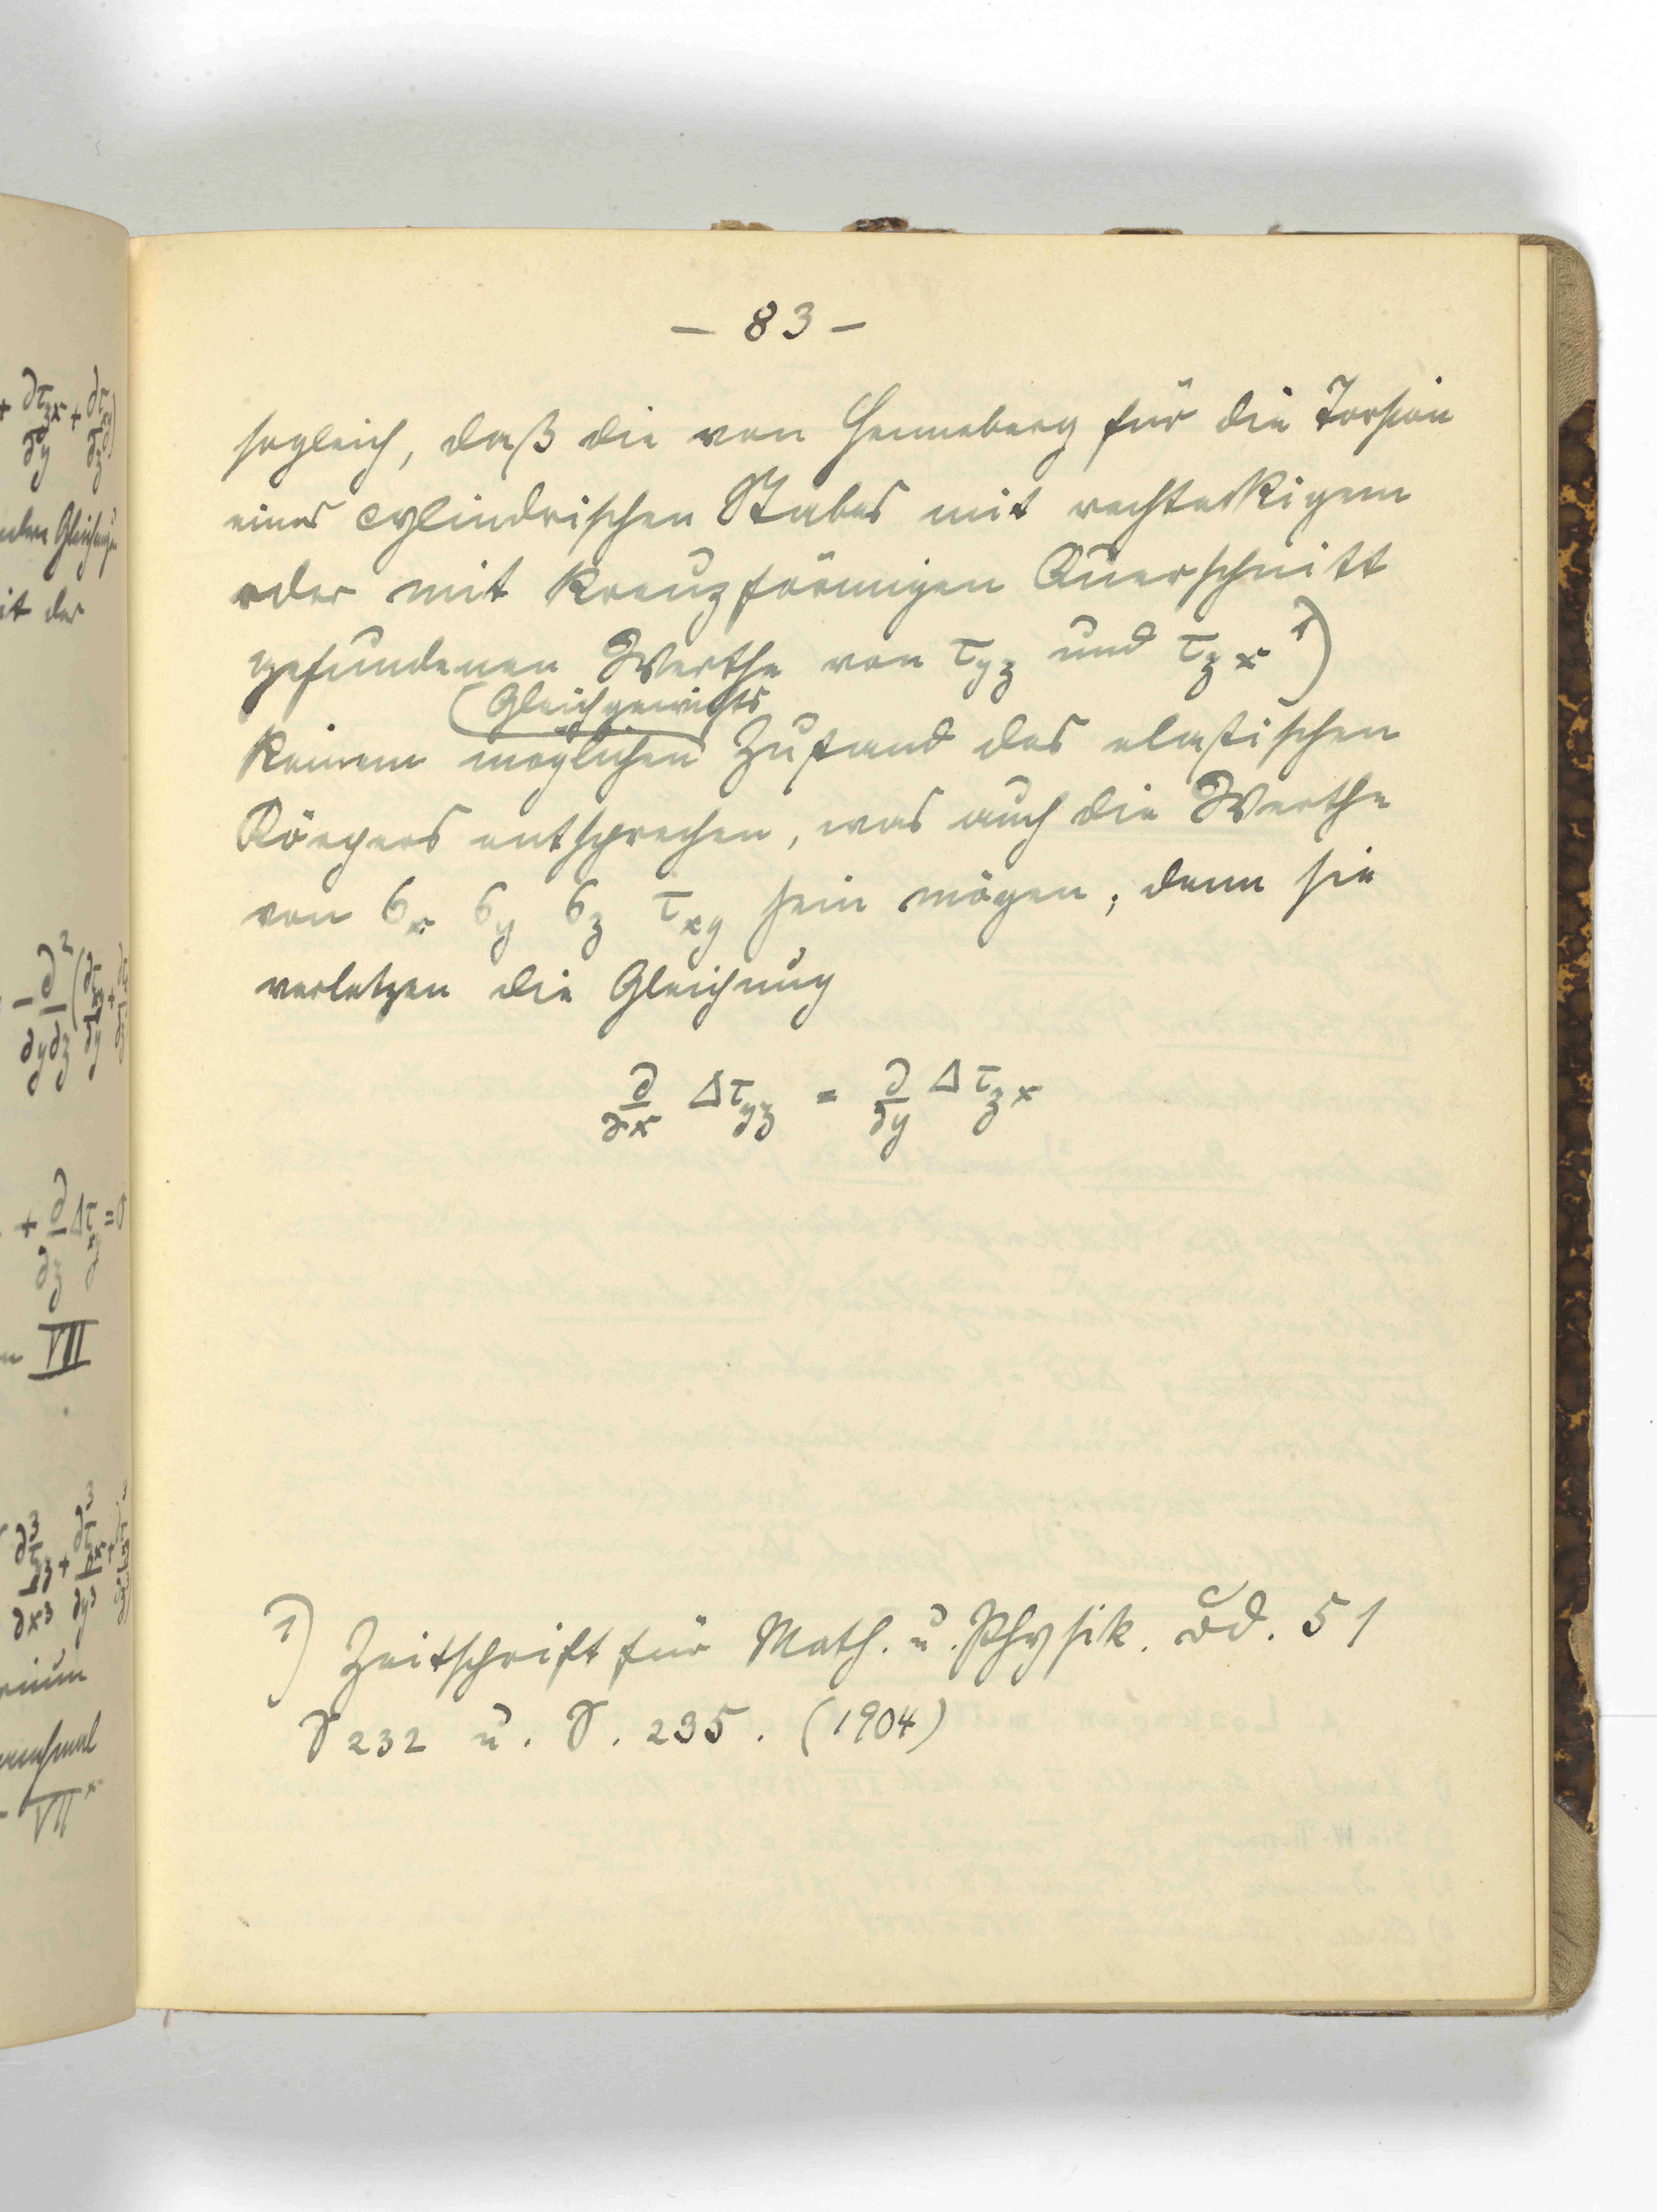 — 83 —
sogleich, daß die von Henneberg für die Torsion
eines cylindrischen Stabes mit rechteckigem
oder mit kreuzförmigen Querschnitt
gefundenen Werthe von τyz und τzx ¹)
(Gleichgewichts
keinem möglichen Zustand des elastischen
Körpers entsprechen, was auch die Werthe
von σx σy σz τxy sein mögen; denn sie
verletzen die Gleichung
∂/∂x Δτyz = ∂/∂y Δτzx
¹) Zeitschrift für Math. u. Physik. Bd. 51
S 232 u. S. 235. (1904)
it der
VII